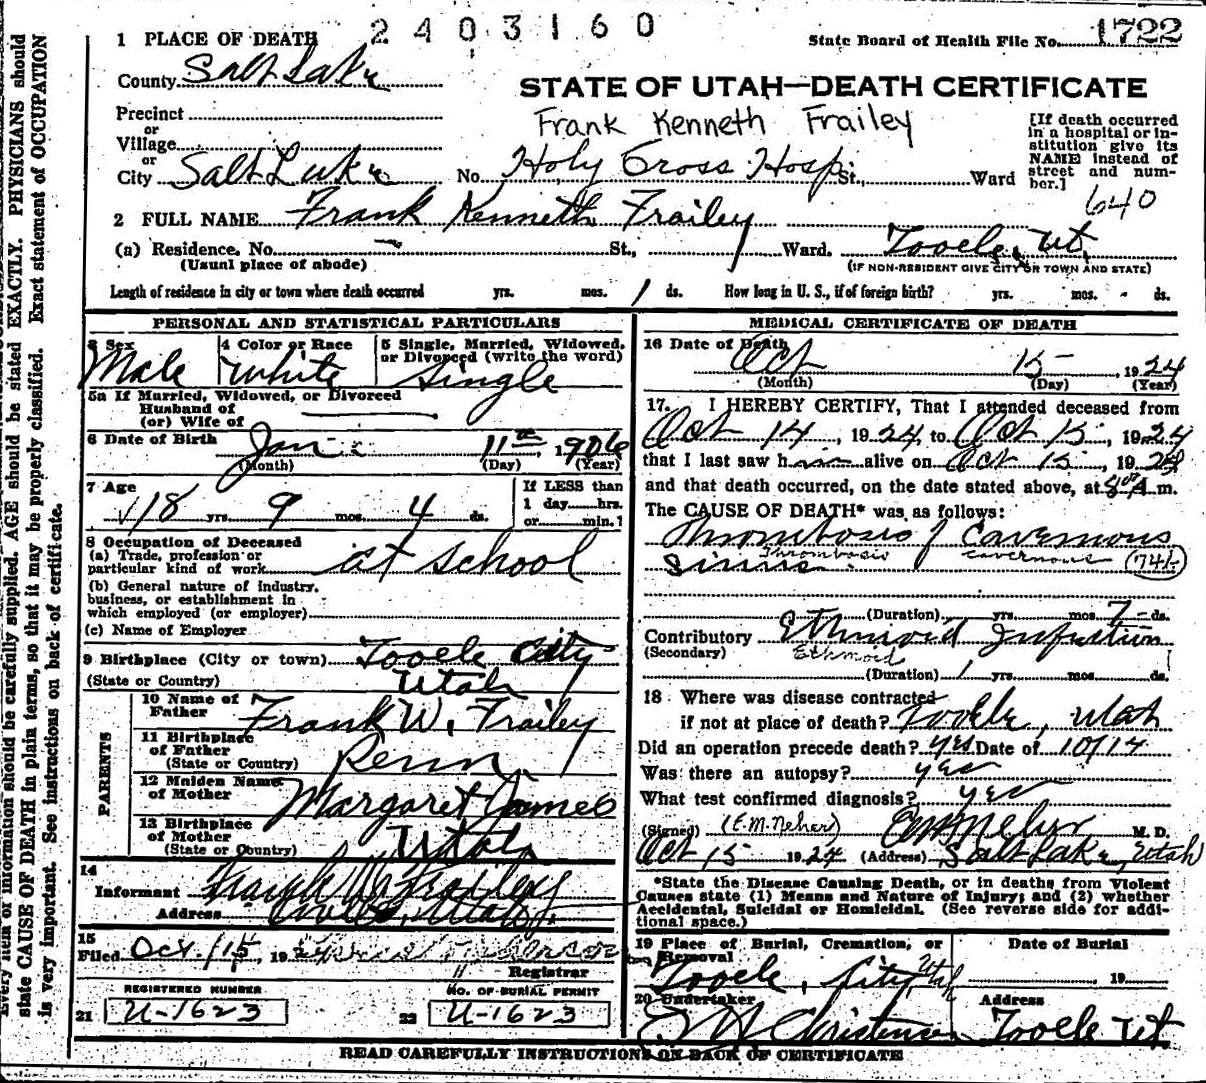 2403160
1 PLACE OF DEATH
State Board of Health File No. 1722
County Salt Lake
STATE OF UTAH—DEATH CERTIFICATE
Precinct
or
Village
Frank Kenneth Frailey
[If death occurred in a hospital or institution give its NAME instead of street and number.]
or
City Salt Lake No. Holy Cross Hosp St., Ward
640
2 FULL NAME Frank Kenneth Frailey
(a) Residence, No. St., Ward. Tooele, Ut.
(Usual place of abode) (IF NON-RESIDENT GIVE CITY OR TOWN AND STATE)
Length of residence in city or town where death occurred yrs. mos. 1 ds. How long in U. S., if of foreign birth? yrs. mos. - ds.
PERSONAL AND STATISTICAL PARTICULARS
3 Sex Male
4 Color or Race White
5 Single, Married, Widowed, or Divorced (write the word) Single
5a If Married, Widowed, or Divorced
Husband of
(or) Wife of
6 Date of Birth Jan 11th, 1906
(Month) (Day) (Year)
7 Age 18 yrs. 9 mos. 4 ds.
If LESS than
1 day hrs.
or min.?
8 Occupation of Deceased
(a) Trade, profession or
particular kind of work at school
(b) General nature of industry,
business, or establishment in
which employed (or employer)
(c) Name of Employer
9 Birthplace (City or town) Tooele City
(State or Country) Utah
PARENTS
10 Name of Father Frank W. Frailey
11 Birthplace of Father (State or Country) Penn.
12 Maiden Name of Mother Margaret James
13 Birthplace of Mother (State or Country) Utah
14
Informant Frank W. Frailey
Address Tooele, Utah
15
Filed Oct 15, 1924
Registrar
REGISTERED NUMBER
21 U-1623
NO. OF BURIAL PERMIT
22 U-1623
MEDICAL CERTIFICATE OF DEATH
16 Date of Death Oct 15, 1924
(Month) (Day) (Year)
17. I HEREBY CERTIFY, That I attended deceased from
Oct 14, 1924, to Oct 15, 1924
that I last saw him alive on Oct 15, 1924
and that death occurred, on the date stated above, at A m.
The CAUSE OF DEATH* was as follows:
Thrombosis of Cavernous
Sinus. Thrombosis cavernous
(Duration) yrs. mos. 7 ds.
Contributory Ethmoid Infection
(Secondary) Ethmoid
(Duration) 1 yrs. mos. ds.
18 Where was disease contracted
if not at place of death? Tooele, Utah
Did an operation precede death? yes Date of 10/14
Was there an autopsy? yes
What test confirmed diagnosis? yes
(Signed) (E.M. Neher) E M Neher M. D.
Oct 15 1924 (Address) Salt Lake, Utah
*State the Disease Causing Death, or in deaths from Violent
Causes state (1) Means and Nature of Injury; and (2) whether
Accidental, Suicidal or Homicidal. (See reverse side for additional space.)
19 Place of Burial, Cremation, or Removal Tooele, City, Utah
Date of Burial
19
20 Undertaker Christensen
Address Tooele Ut.
READ CAREFULLY INSTRUCTIONS ON BACK OF CERTIFICATE
Every item of information should be carefully supplied. AGE should be stated EXACTLY. PHYSICIANS should
state CAUSE OF DEATH in plain terms, so that it may be properly classified. Exact statement of OCCUPATION
is very important. See instructions on back of certificate.